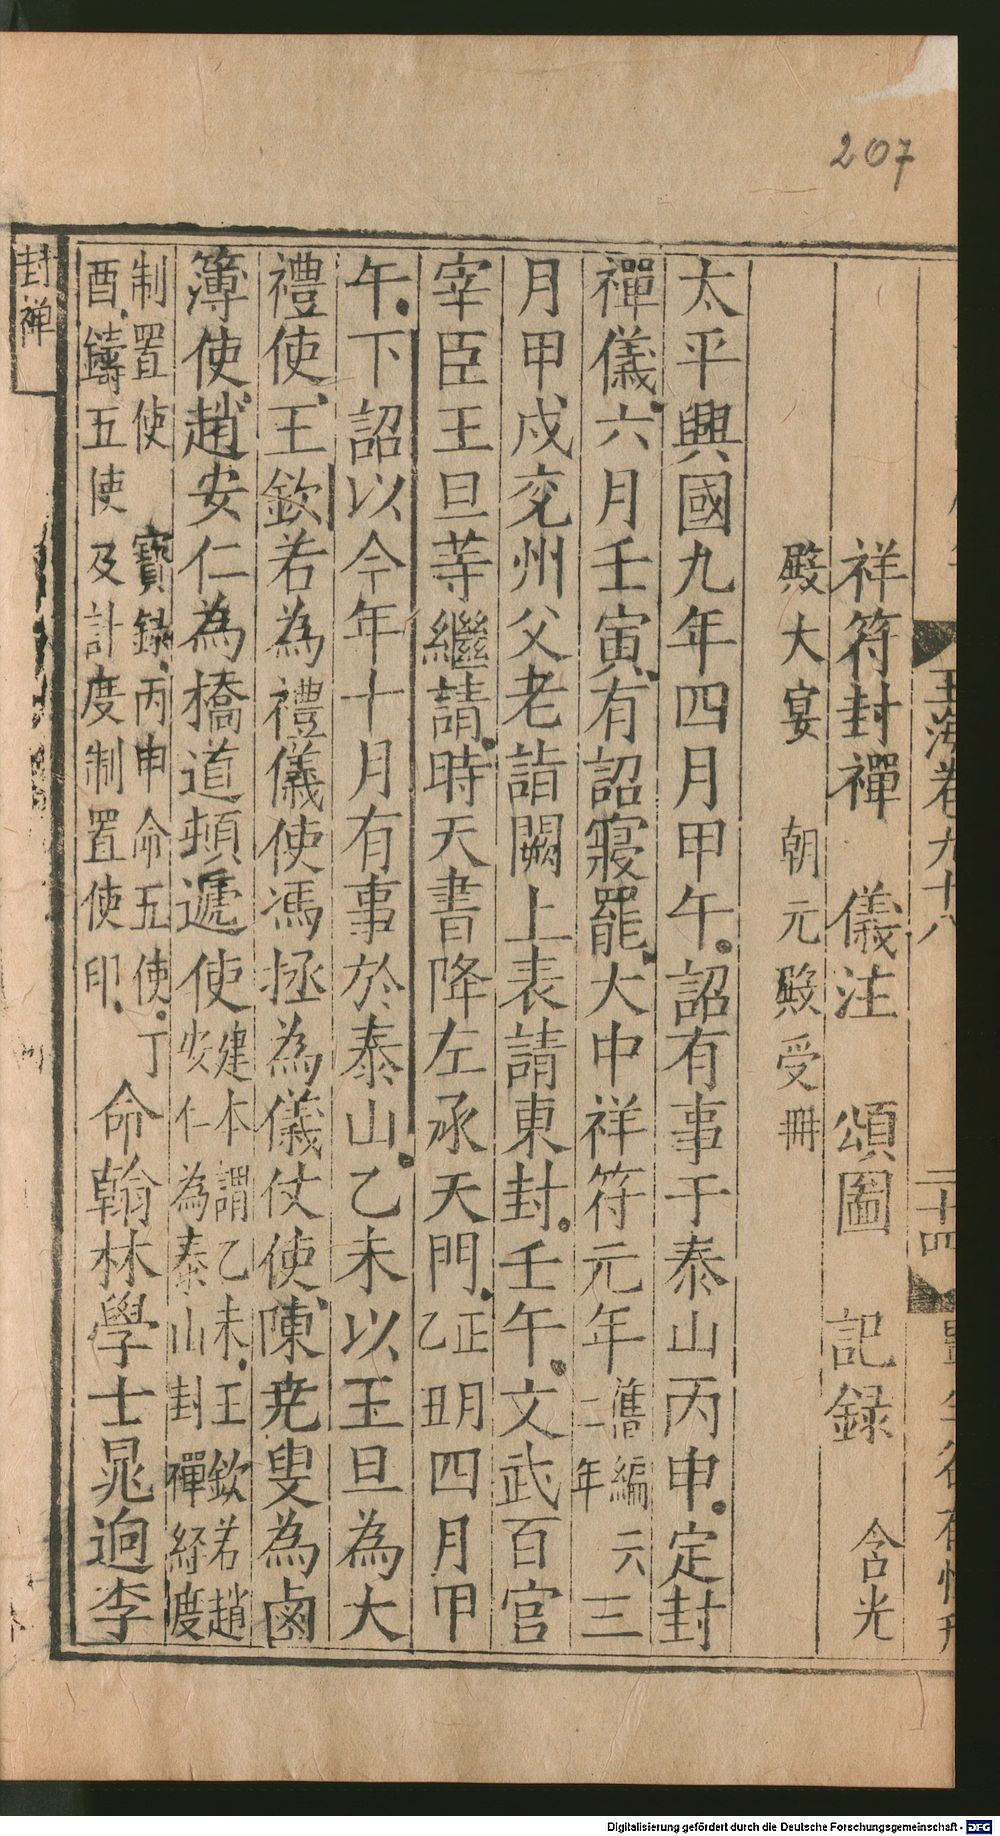 207
玉海卷九十八
二十四
祥符封禪 儀注 頌圖 記録 含光
殿大宴 朝元殿受冊
太平興國九年四月甲午詔有事于泰山丙申定封
禪儀六月壬寅有詔寢罷大中祥符元年舊編六二年三
月甲戌兖州父老詣闕上表請東封壬午文武百官
宰臣王旦等繼請時天書降左承天門正月乙丑明四月甲
午下詔以今年十月有事於泰山乙未以王旦為大
禮使王欽若為禮儀使馮拯為儀仗使陳堯叟為鹵
簿使趙安仁為橋道頓遞使建本謂乙未王欽若趙安仁為泰山封禪經度
制置使 寶録丙申命五使丁酉鑄五使及計度制置使印命翰林學士晁迥李
封禪
Digitalisierung gefördert durch die Deutsche Forschungsgemeinschaft - DFG